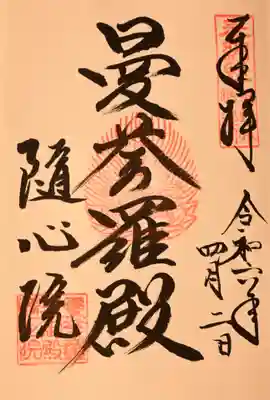 奉拝
令和六年
四月二日
曼荼羅殿
隨心院